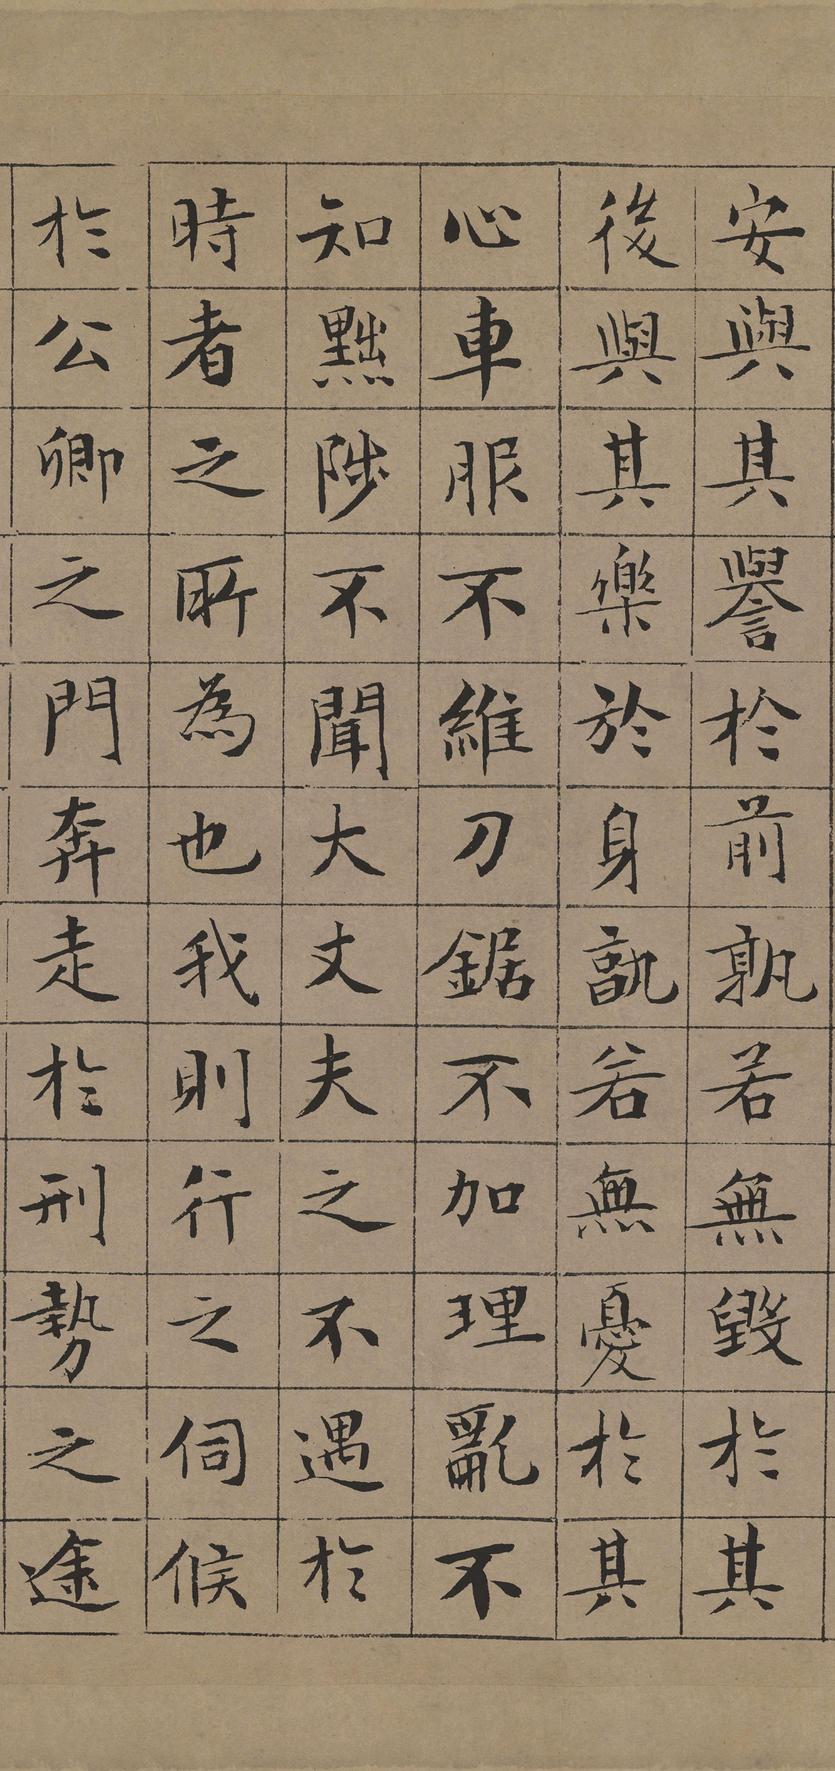 安與其譽於前孰若無毀於其
後與其樂於身孰若無憂於其
心車服不維刀鋸不加理亂不
知黜陟不聞大丈夫之不遇於
時者之所為也我則行之伺候
於公卿之門奔走於刑勢之途